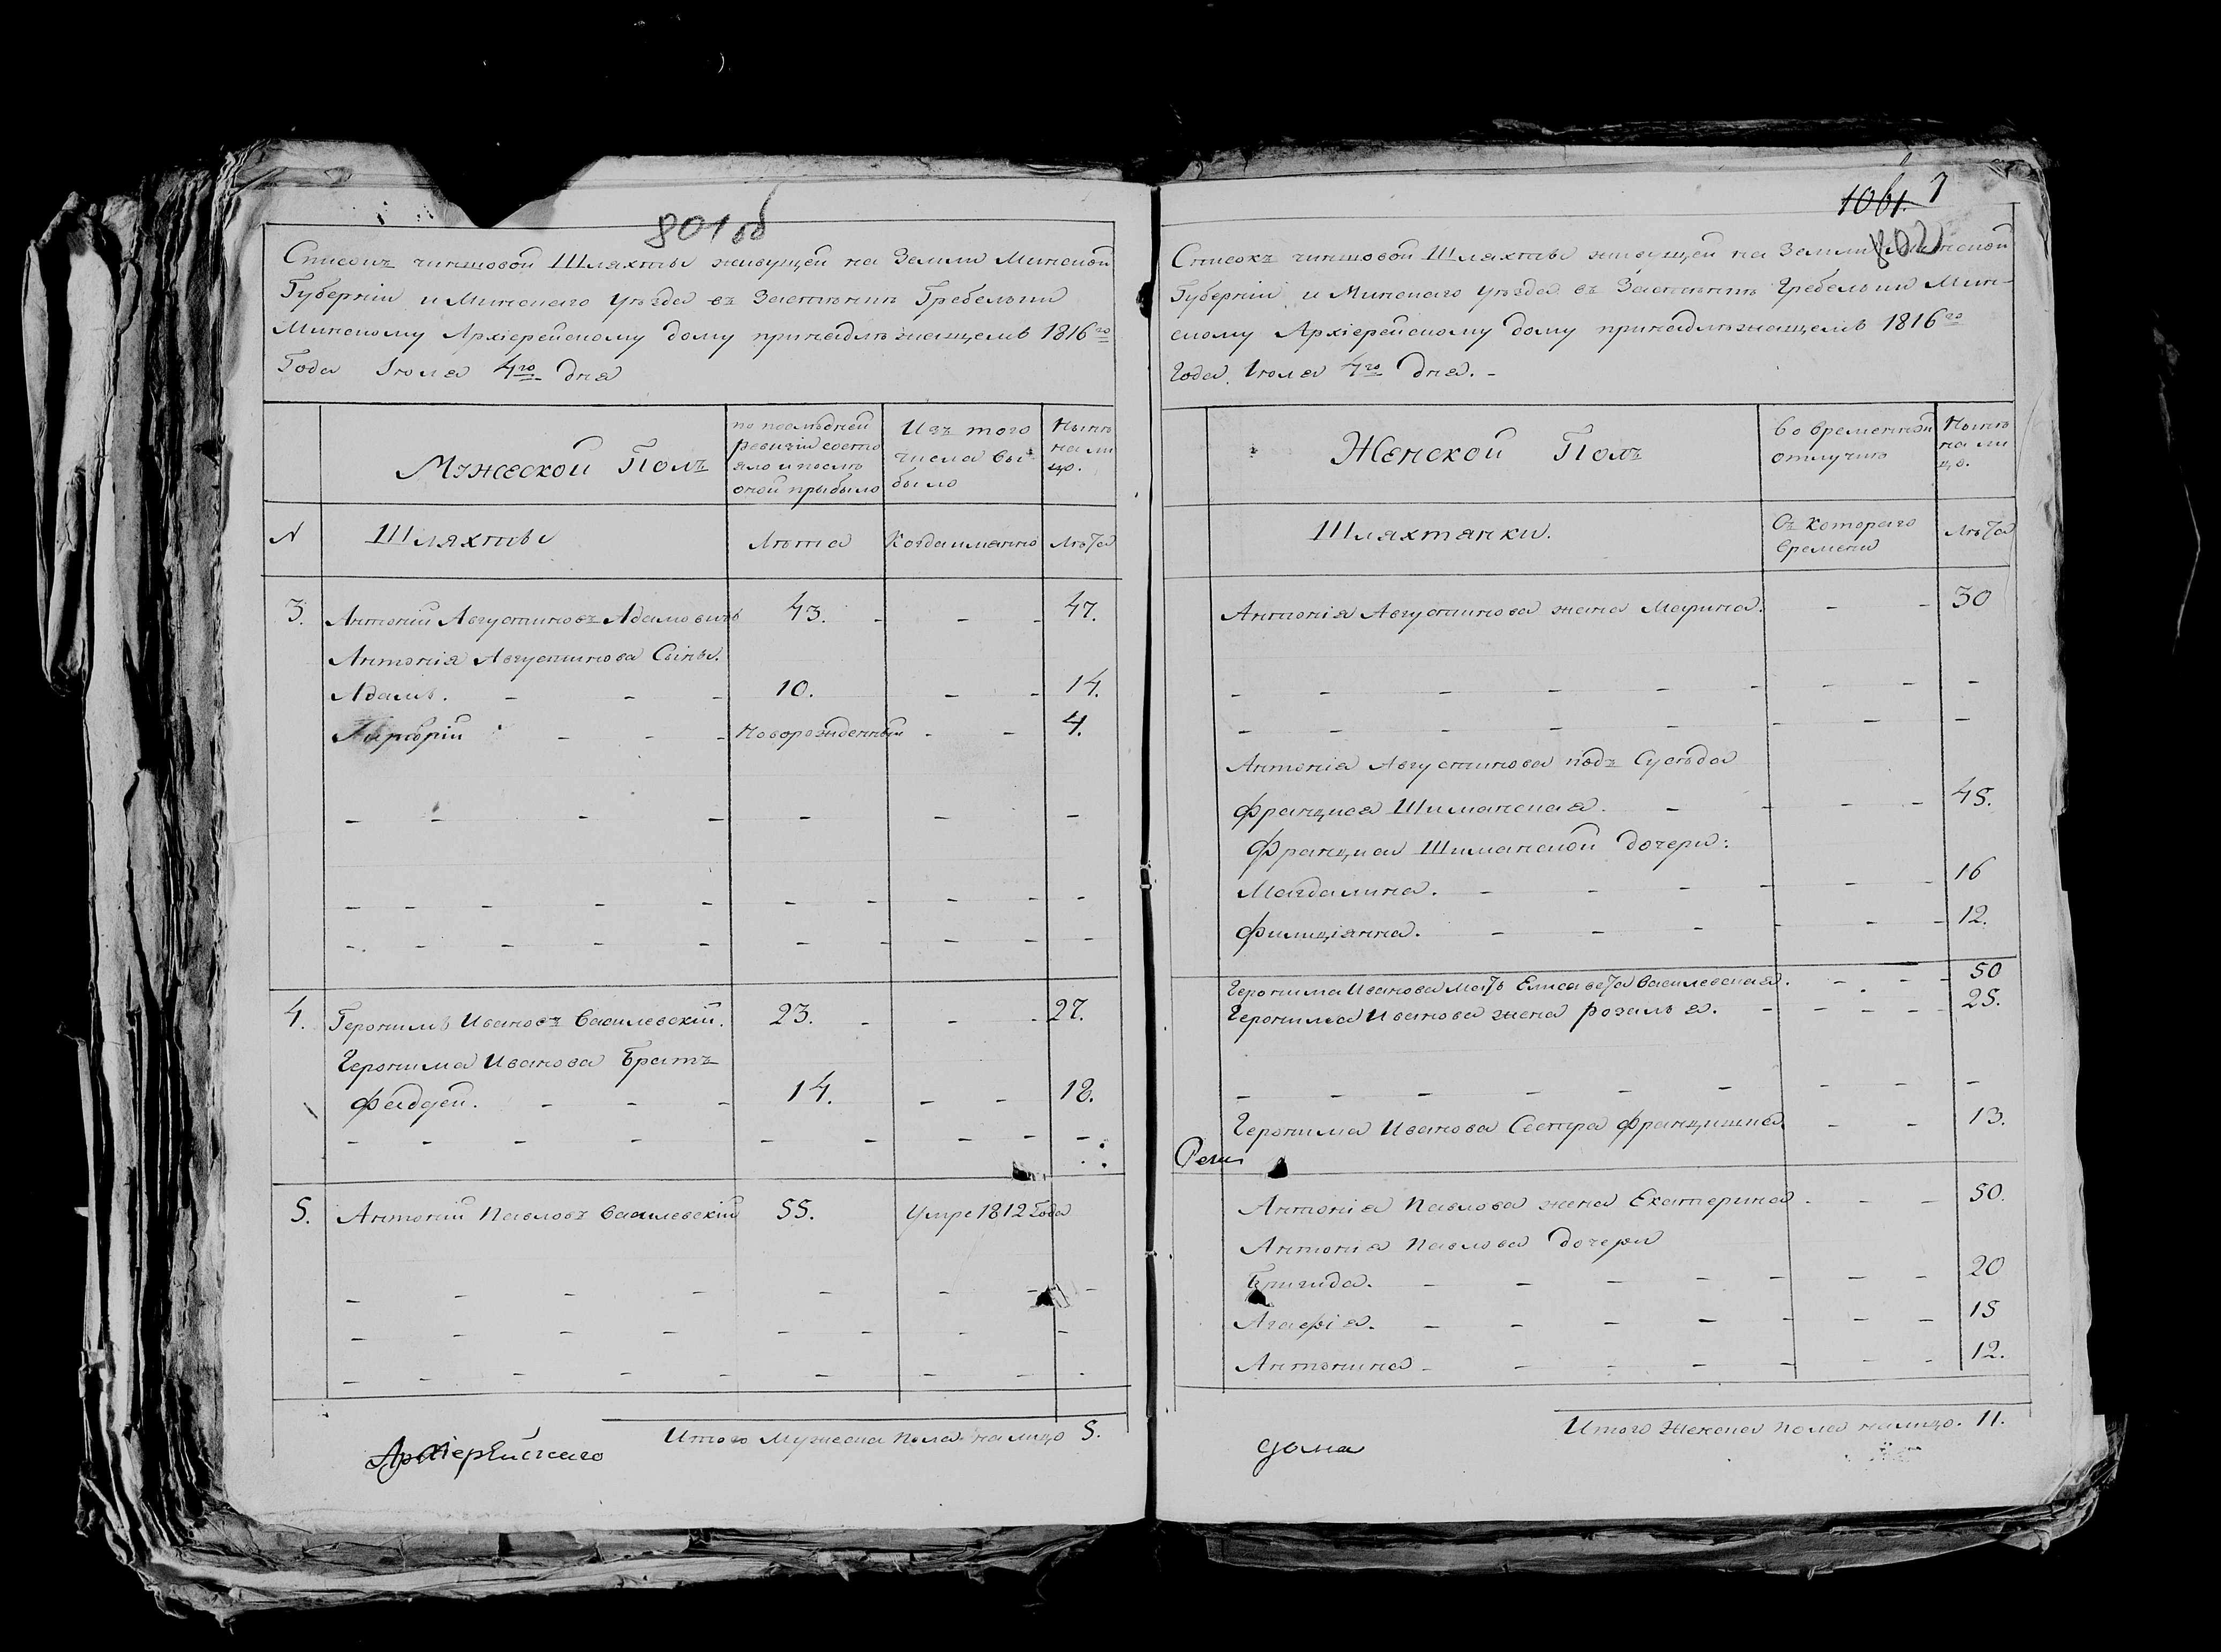 801 об
Списокъ чиншовой Шляхты живущей на Земли Минской
Губерніи и Минскаго Уѣзда въ Застѣнкѣ Гребелька
Минскому Архіерейскому дому принадлѣжащемъ 1816го
Года Іюля 4го дня
Мужеской Полъ
по послѣдней
ревизіи состо
яло и послѣ
оной прибыло
Изъ того
числа вы
было
Нынѣ
на ли
цо.
N
Шляхты
Лѣта
Когда имянно
Лѣта
3. Антоній Августиновъ Адамовичь 43. - - - 47.
Антонія Августинова Сыны.
Адамъ. - - - 10. - - 14.
- - - Новорожденный - - 4.
4. Геронимъ Ивановъ Василевскій. 23. - - - 27.
Геронима Иванова Братъ
Фадден. - - - 14. - - 18.
5. Антоній Павловъ Василевскій 55. Умре 1812 Года
Итого Мужеска пола на лицо 5.
Архіерейскаго
1061.
802
Списокъ чиншовой Шляхты живущей на Земли Минской
Губерніи и Минскаго Уѣзда въ Застѣнкѣ Гребелька Мин-
скому Архіерейскому дому принадлѣжащемъ 1816го
Года Іюля 4го Дня. -
Женской Полъ
Во временной
отлучкѣ
Нынѣ
на ли
цо.
Шляхтянки.
Съ котораго
времени
Лѣта
Антонія Августинова жена Марина. - - 30
Антонія Августинова подъ Сусѣда
Франциса Шиманская. - - - - 45.
Франциси Шиманской дочери:
Магдалина. - - - - - - 16
Филиціанна. - - - - - - 12.
Геронима Иванова Мать Елисавета Василевская. - - - 50
Геронима Иванова жена Розалія. - - - - 25.
Геронима Иванова Сестра Францишка. - - 13.
Антонія Павлова жена Екатерина. - - 50.
Антонія Павлова дочери
Бригида. - - - - - - - 20
Агафія. - - - - - - - 15
Антонина - - - - - - 12.
Итого Женска пола на лицо. 11.
дома